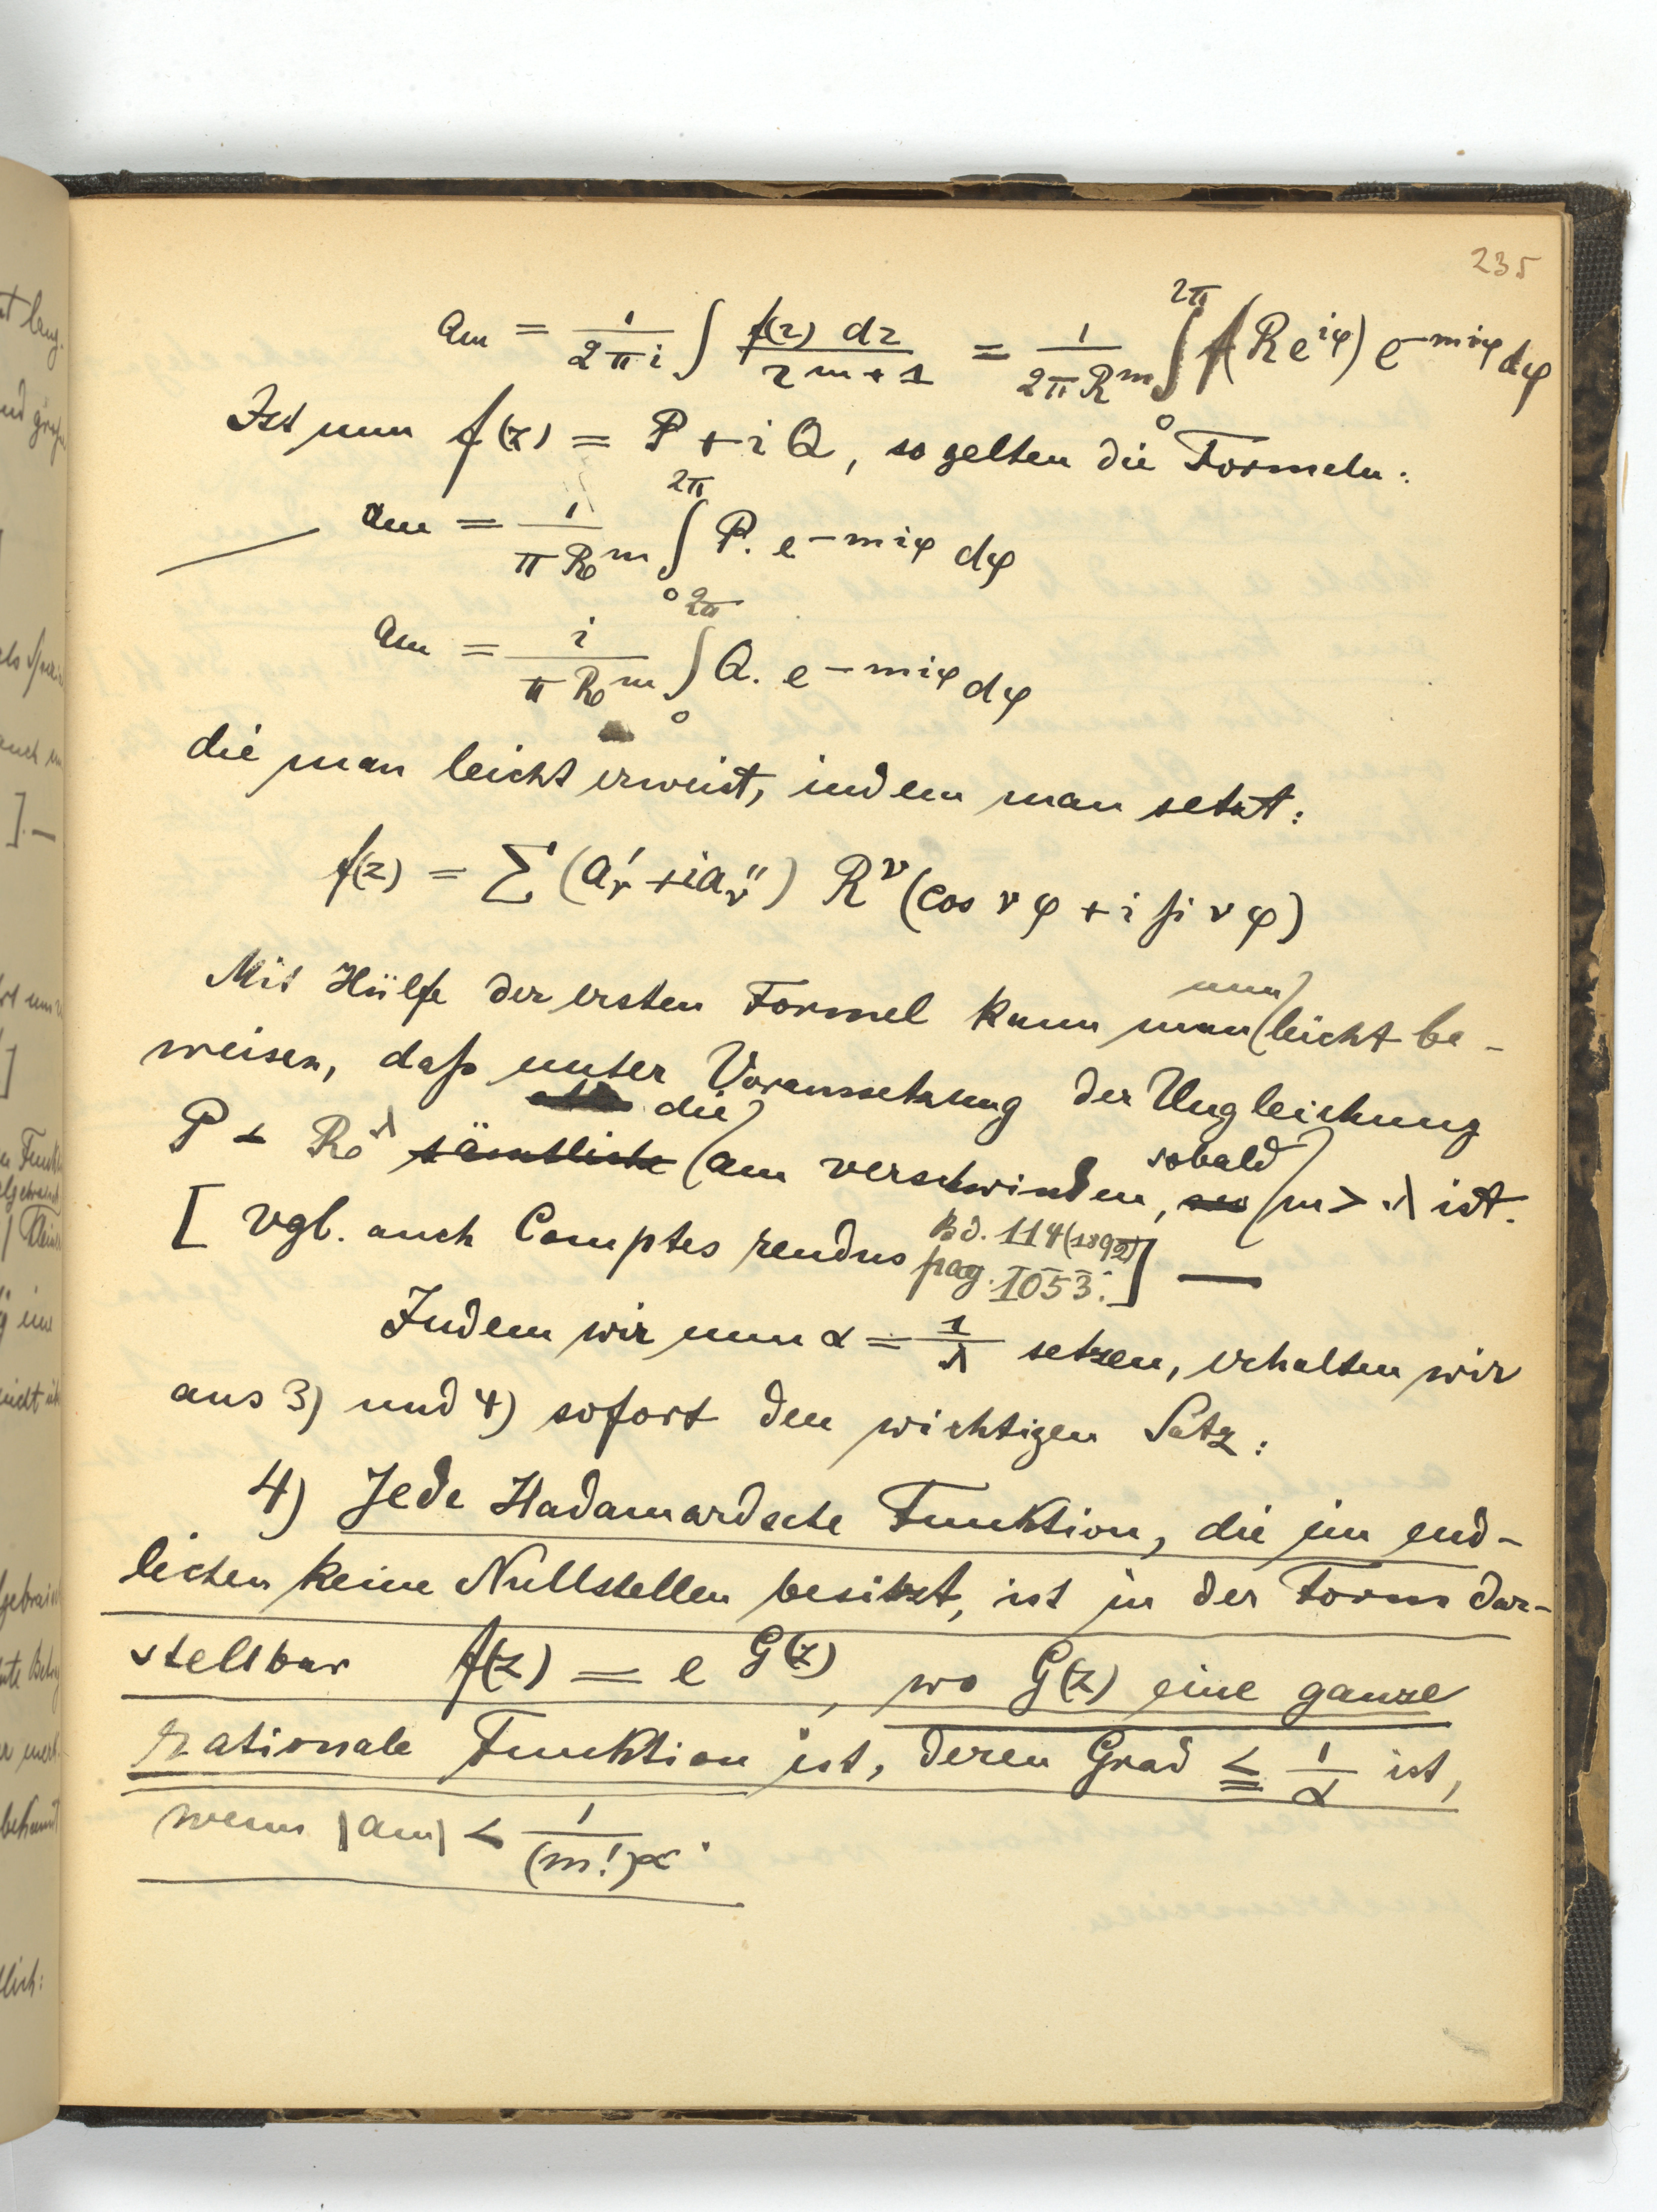 235
a_m = 1/(2πi) ∫ f(z) dz / z^{m+1} = 1/(2πR^m) ∫_0^{2π} f(Re^{iφ}) e^{-miφ} dφ
Ist nun f(z) = P + iQ, so gelten die Formeln:
a_m = 1/(πR_0^m) ∫_0^{2π} P. e^{-miφ} dφ
a_m = i/(πR_0^m) ∫_0^{2π} Q. e^{-miφ} dφ
die man leicht erweist, indem man setzt:
f(z) = Σ (a'_ν + ia''_ν) R^ν (cos νφ + i si νφ)
Mit Hülfe der ersten Formel kann man nun leicht be-
weisen, daß unter Voraussetzung der Ungleichung
P < R_0^λ sämtliche die a_m verschwinden, sobald m > λ ist.
[vgl. auch Comptes rendus Bd. 114 (1892) pag. 1053.] —
Indem wir nun α = 1/λ setzen, erhalten wir
aus 3) und 4) sofort den wichtigen Satz:
4) Jede Hadamardsche Funktion, die im end-
lichen keine Nullstellen besitzt, ist in der Form dar-
stellbar f(z) = e^{G(z)}, wo G(z) eine ganze
rationale Funktion ist, deren Grad ≦ 1/α ist,
wenn |a_m| < 1/(m!)^α.